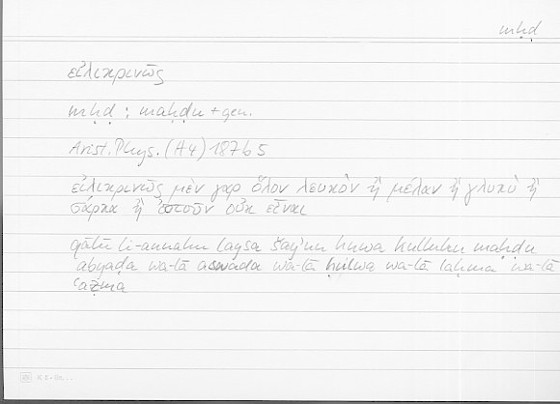 mḥḍ
εἰλικρινῶς
mḥḍ : maḥḍu + gen.
Arist. Phys. (A4) 187b5
εἰλικρινῶς μὲν γὰρ ὅλον λευκὸν ἢ μέλαν ἢ γλυκὺ ἢ
σάρκα ἢ ὀστοῦν οὐκ εἶναι
qālū li-annahu laysa šayʾun huwa kulluhu maḥḍu
abyaḍa wa-lā aswada wa-lā ḥulwa wa-lā laḥma wa-lā
ʿaẓma